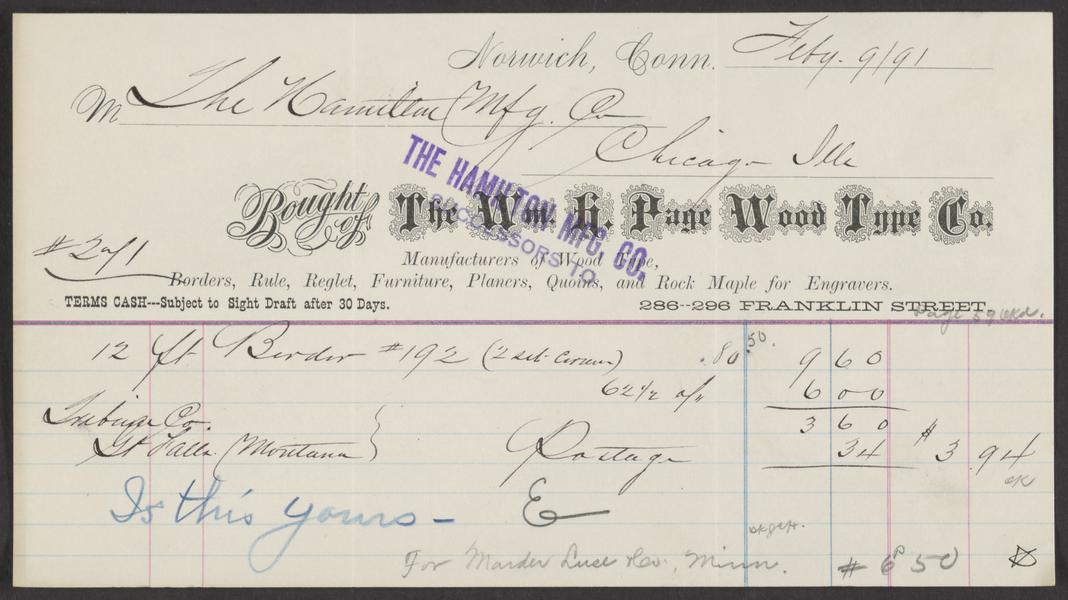 Norwich, Conn. Feby. 9/91
M The Hamilton Mfg. Co
Chicago Ills
THE HAMILTON MFG. CO.
SUCCESSORS TO
Bought of The Wm. H. Page Wood Type Co.
# 2071
Manufacturers of Wood Type,
Borders, Rule, Reglet, Furniture, Planers, Quoins, and Rock Maple for Engravers.
TERMS CASH---Subject to Sight Draft after 30 Days. 286--296 FRANKLIN STREET.
Page 59
12 ft Border #192 (2 set Corners) .80 .50. 9 60
62 1/2 6 00
Tribune Co. 3 60
Gt Falls (Montana) Postage 34 $ 3.94
ok
Is this yours - E
For Marder Luse & Co., Minn. # 6 50